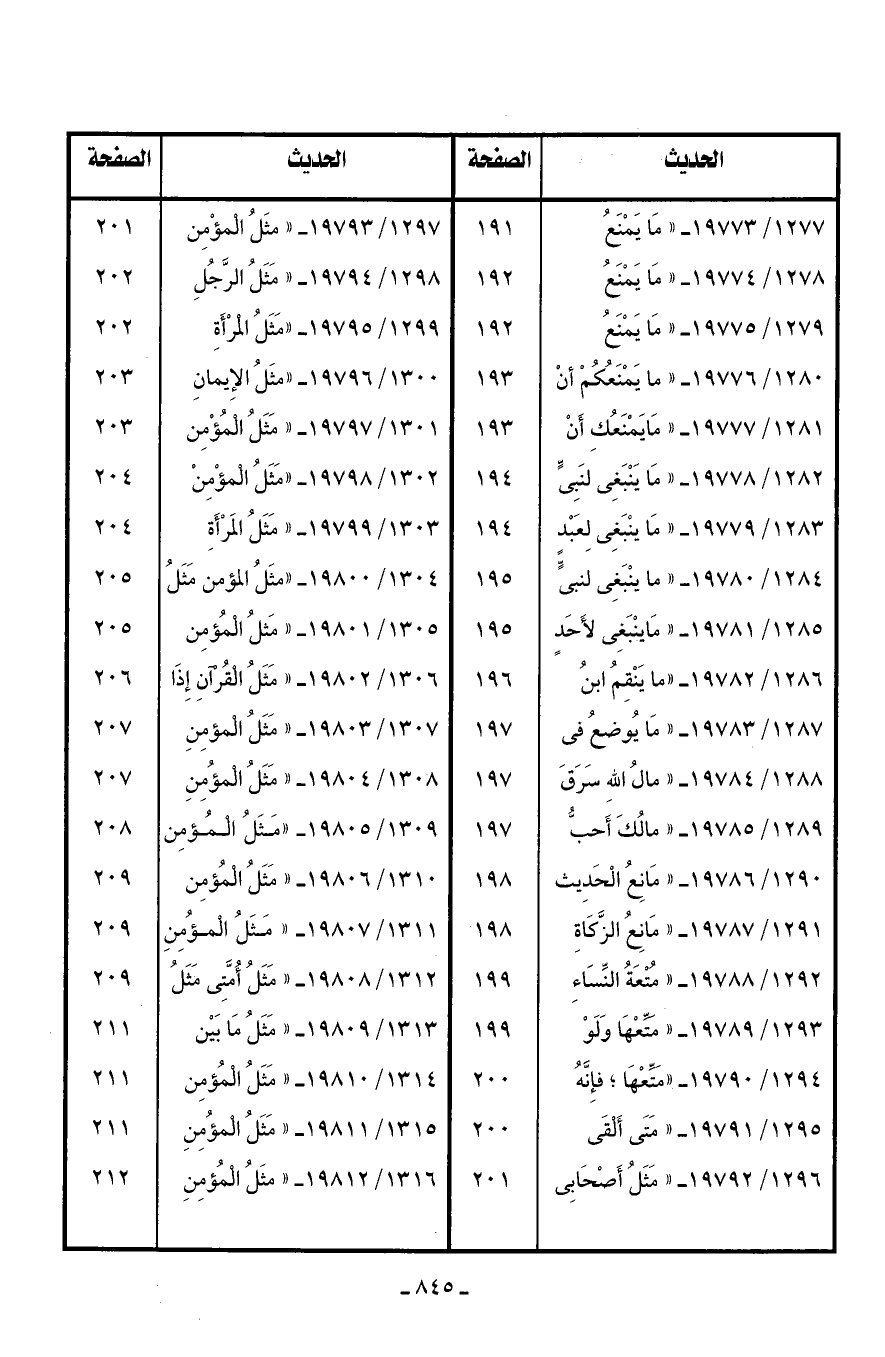 الحديث الصفحة الحديث الصفحة
١٢٧٧/ ١٩٧٧٣ـ « مَا يَمْنَعُ ١٩١ ١٢٩٧/ ١٩٧٩٣ـ « مثَلُ الْمؤْمِن ٢٠١
١٢٧٨/ ١٩٧٧٤ـ « مَا يَمْنَعُ ١٩٢ ١٢٩٨/ ١٩٧٩٤ـ « مَثَلُ الرَّجُلِ ٢٠٢
١٢٧٩/ ١٩٧٧٥ـ « مَا يَمْنَعُ ١٩٢ ١٢٩٩/ ١٩٧٩٥ـ «مَثَلُ الْمْرْأَةِ ٢٠٢
١٢٨٠/ ١٩٧٧٦ـ « ما يَمْنَعُكُمْ أنْ ١٩٣ ١٣٠٠/ ١٩٧٩٦ـ «مثَلُ الإِيمانِ ٢٠٣
١٢٨١/ ١٩٧٧٧ـ « مَايَمْنَعُكِ أَنْ ١٩٣ ١٣٠١/ ١٩٧٩٧ـ « مَثَلُ الْمُؤْمِن ٢٠٣
١٢٨٢/ ١٩٧٧٨ـ « مَا يَنْبَغِى لنَبىٍّ ١٩٤ ١٣٠٢/ ١٩٧٩٨ـ «مثَلُ الْمؤْمِنْ ٢٠٤
١٢٨٣/ ١٩٧٧٩ـ « مَا ينْبَغِى لِعَبْدٍ ١٩٤ ١٣٠٣/ ١٩٧٩٩ـ « مَثَلُ المَرْأَةِ ٢٠٤
١٢٨٤/ ١٩٧٨٠ـ « ما ينْبَغِى لنبىٍّ ١٩٥ ١٣٠٤/ ١٩٨٠٠ـ «مثَلُ المؤمن مَثَلُ ٢٠٥
١٢٨٥/ ١٩٧٨١ـ « مَاينْبَغِى لأَحَدٍ ١٩٥ ١٣٠٥/ ١٩٨٠١ـ « مَثلُ الْمُؤمِنِ ٢٠٥
١٢٨٦/ ١٩٧٨٢ـ «ما يَنْقِمُ ابنُ ١٩٦ ١٣٠٦/ ١٩٨٠٢ـ « مَثَلُ الْقُرآنِ إِذَا ٢٠٦
١٢٨٧/ ١٩٧٨٣ـ « مَا يُوضعُ فى ١٩٧ ١٣٠٧/ ١٩٨٠٣ـ « مَثَلُ الْمؤمِنِ ٢٠٧
١٢٨٨/ ١٩٧٨٤ـ « مالُ اللهِ سَرَقَ ١٩٧ ١٣٠٨/ ١٩٨٠٤ـ « مَثَلُ الْمؤُمِنِ ٢٠٧
١٢٨٩/ ١٩٧٨٥ـ « مالُكَ أَحبُّ ١٩٧ ١٣٠٩/ ١٩٨٠٥ـ «مَـثَلُ الْـمُـؤمِنِ ٢٠٨
١٢٩٠/ ١٩٧٨٦ـ « مَانِعُ الْحَدِيث ١٩٨ ١٣١٠/ ١٩٨٠٦ـ « مَثَلُ الْمُؤْمِنِ ٢٠٩
١٢٩١/ ١٩٧٨٧ـ « مَانِعُ الزَّكَاةِ ١٩٨ ١٣١١/ ١٩٨٠٧ـ « مَـثَلُ الْمـؤُمِنِ ٢٠٩
١٢٩٢/ ١٩٧٨٨ـ « مُتْعَةُ النِّسَاءِ ١٩٩ ١٣١٢/ ١٩٨٠٨ـ « مَثَلُ أُمَّتِى مَثَلُ ٢٠٩
١٢٩٣/ ١٩٧٨٩ـ « مَتِّعْهَا وَلَوْ ١٩٩ ١٣١٣/ ١٩٨٠٩ـ « مَثَلُ مَا بَيْن ٢١١
١٢٩٤/ ١٩٧٩٠ـ «مَتِّعْهَا ؛ فإنَّهُ ٢٠٠ ١٣١٤/ ١٩٨١٠ـ « مَثَلُ الْمُؤمِنِ ٢١١
١٢٩٥/ ١٩٧٩١ـ « مَتَى أَلْقَى ٢٠٠ ١٣١٥/ ١٩٨١١ـ « مَثَلُ الْمؤُمِنِ ٢١١
١٢٩٦/ ١٩٧٩٢ـ « مَثَلُ أَصْحَابِى ٢٠١ ١٣١٦/ ١٩٨١٢ـ « مثَلُ الْمُؤمِنِ ٢١٢
ـ ٨٤٥ ـ